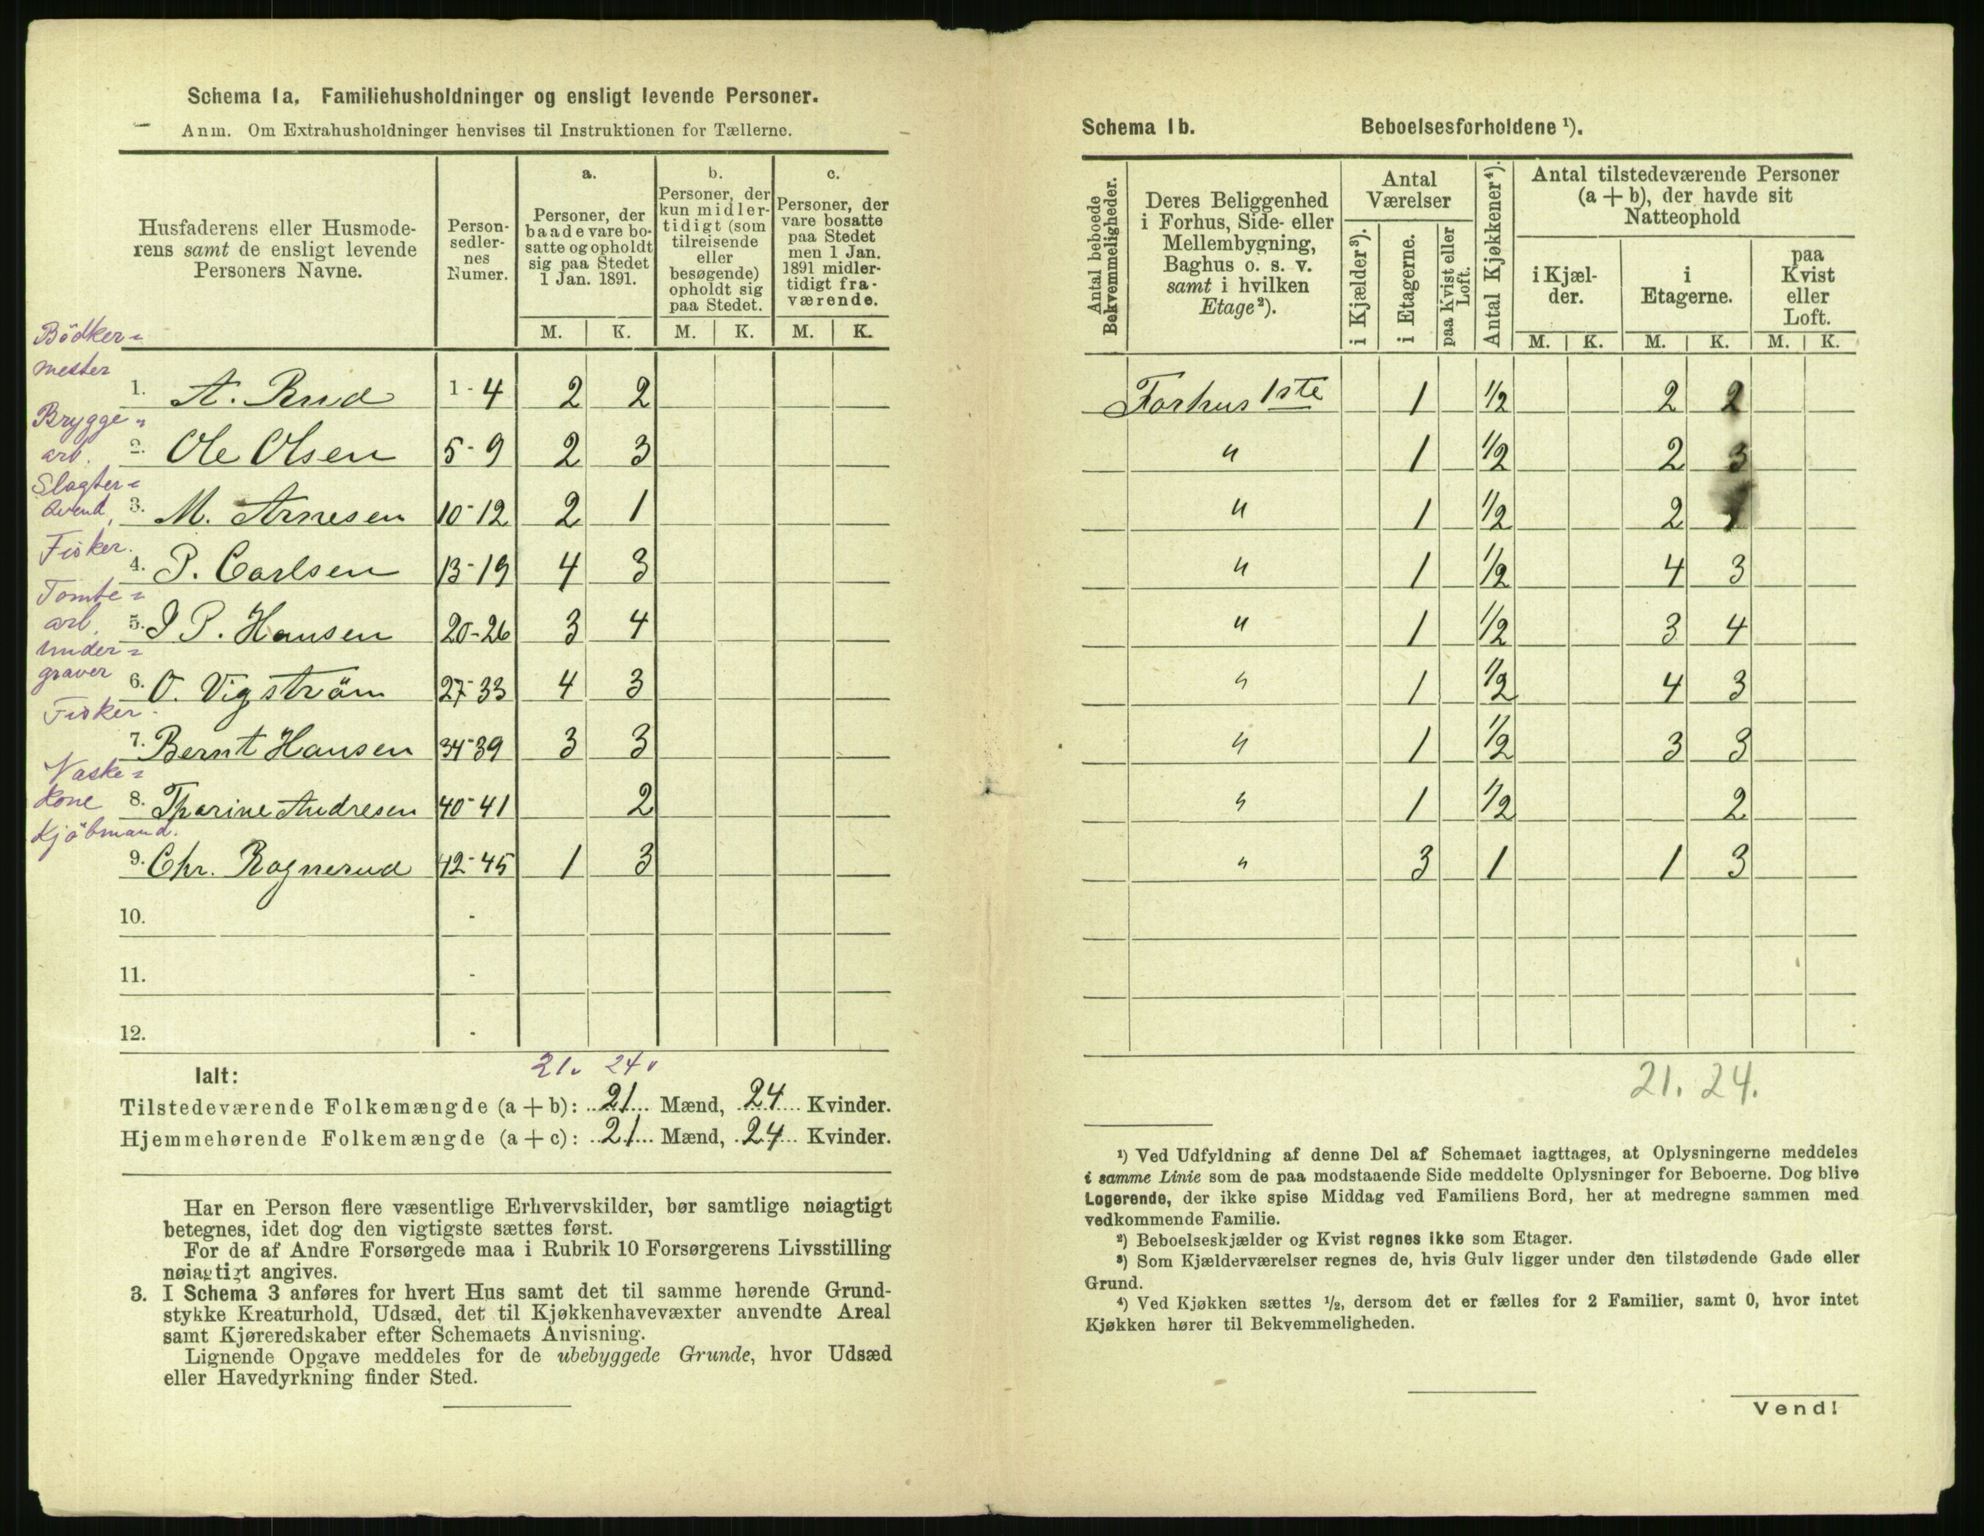 Schema 1a. Familiehusholdninger og ensligt levende Personer.
Anm. Om Extrahusholdninger henvises til Instruktionen for Tællerne.
Husfaderens eller Husmoderens samt de ensligt levende Personers Navne.
Personsedlernes Numer.
a. Personer, der baade vare bosatte og opholdt sig paa Stedet 1 Jan. 1891.
b. Personer, der kun midlertidigt (som tilreisende eller besøgende) opholdt sig paa Stedet.
c. Personer, der vare bosatte paa Stedet men 1 Jan. 1891 midlertidigt fraværende.
M. K. M. K. M. K.
Bödkermester 1. A. Rud 1-4 2 2
Bryggearb. 2. Ole Olsen 5-9 2 3
Slagtersvend, 3. M. Arnesen 10-12 2 1
Fisker. 4. P. Carlsen 13-19 4 3
Tomtearb. 5. J P. Hansen 20-26 3 4
Mudergraver 6. O. Vigström 27-33 4 3
Fisker. 7. Bernt Hansen 34-39 3 3
Vaskekone 8. Tharine Andresen 40-41 2
Kjöbmand. 9. Chr. Ragnerud 42-45 1 3
10. -
11. -
12. -
21. 24.
Ialt:
Tilstedeværende Folkemængde (a + b): 21 Mænd, 24 Kvinder.
Hjemmehørende Folkemængde (a + c): 21 Mænd, 24 Kvinder.
Har en Person flere væsentlige Erhvervskilder, bør samtlige nøiagtigt
betegnes, idet dog den vigtigste sættes først.
For de af Andre Forsørgede maa i Rubrik 10 Forsørgerens Livsstilling
nøiagtigt angives.
3. I Schema 3 anføres for hvert Hus samt det til samme hørende Grund-
stykke Kreaturhold, Udsæd, det til Kjøkkenhavevæxter anvendte Areal
samt Kjøreredskaber efter Schemaets Anvisning.
Lignende Opgave meddeles for de ubebyggede Grunde, hvor Udsæd
eller Havedyrkning finder Sted.
Schema 1b. Beboelsesforholdene ¹).
Antal beboede Bekvemmeligheder.
Deres Beliggenhed i Forhus, Side- eller Mellembygning, Baghus o. s. v. samt i hvilken Etage²).
Antal Værelser
i Kjælder³).
i Etagerne.
paa Kvist eller Loft.
Antal Kjøkkener⁴).
Antal tilstedeværende Personer (a + b), der havde sit Natteophold
i Kjælder.
i Etagerne.
paa Kvist eller Loft.
M. K. M. K. M. K.
Forhus 1ste 1 1/2 2 2
" 1 1/2 2 3
" 1 1/2 2 1
" 1 1/2 4 3
" 1 1/2 3 4
" 1 1/2 4 3
" 1 1/2 3 3
" 1 1/2 2
" 3 1 1 3
21. 24.
¹) Ved Udfyldning af denne Del af Schemaet iagttages, at Oplysningerne meddeles
i samme Linie som de paa modstaaende Side meddelte Oplysninger for Beboerne. Dog blive
Logerende, der ikke spise Middag ved Familiens Bord, her at medregne sammen med
vedkommende Familie.
²) Beboelseskjælder og Kvist regnes ikke som Etager.
³) Som Kjælderværelser regnes de, hvis Gulv ligger under den tilstødende Gade eller
Grund.
⁴) Ved Kjøkken sættes ½, dersom det er fælles for 2 Familier, samt 0, hvor intet
Kjøkken hører til Bekvemmeligheden.
Vend!